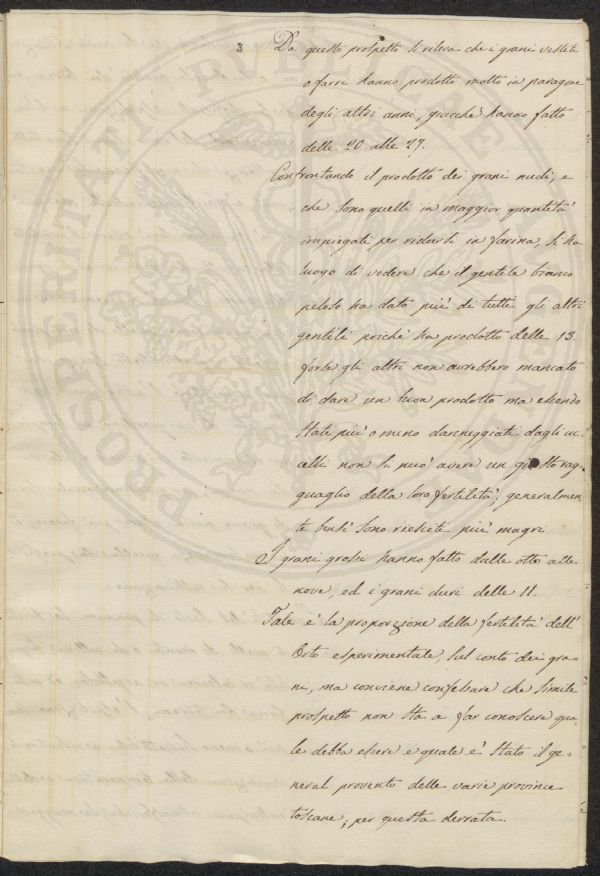 3 Da questo prospetto si rileva che i grani vestiti
o farri hanno prodotto molto in paragone
degli altri anni, giacchè hanno fatto
delle 20 alle 27.
Confrontando il prodotto dei grani nudi, e
che sono quelli in maggior quantità
impiegati per ridursi in farina, si ha
luogo di vedere che il gentile bianco
peloso ha dato più di tutti gli altri
gentili poichè ha prodotto delle 13.
forse gli altri non avrebbero mancato
di dare un buon prodotto ma essendo
stati più o meno danneggiati dagli uc-
celli non si può avere un giusto rag-
guaglio della loro fertilità; generalmen
te bensì sono riesciti più magri.
I grani grossi hanno fatto dalle otto alle
nove, ed i grani duri delle 11.
Tale è la proporzione della fertilità dell'
Orto esperimentale, sul conto dei gra-
ni, ma conviene confessare che simile
prospetto non sta a far conoscere qua-
le debba essere e quale è stato il ge-
neral provento delle varie province
toscane, per questa derrata.
PROSPERITATI PVBLICAE